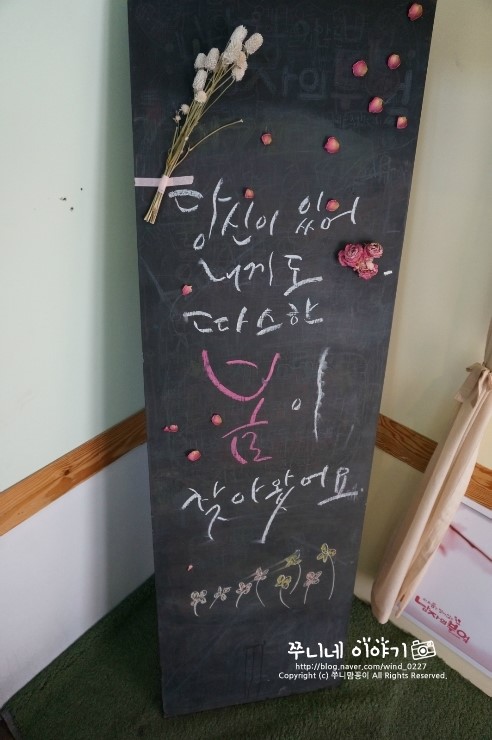 당신이 있어
내게도
따스한
봄이
찾아왔어요.
쭈니네 이야기
http://blog.naver.com/wind_0227
Copyright (c) 쭈니맘롱이 All Rights Reserved.
남자의부엌